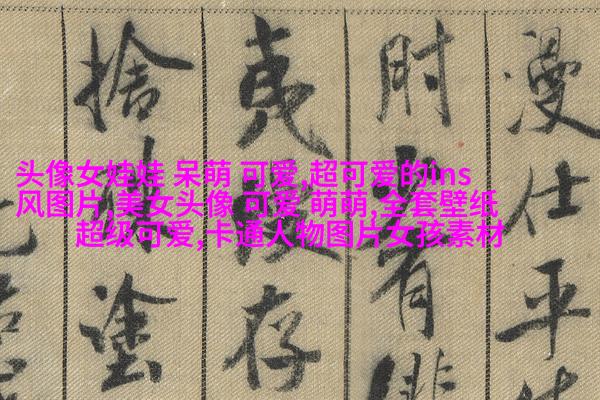 头像女娃娃 呆萌 可爱,超可爱的ins
风图片,美女头像 可爱 萌萌,全套壁纸
超级可爱,卡通人物图片女孩素材
漫仕平
有
夷存
捨塗